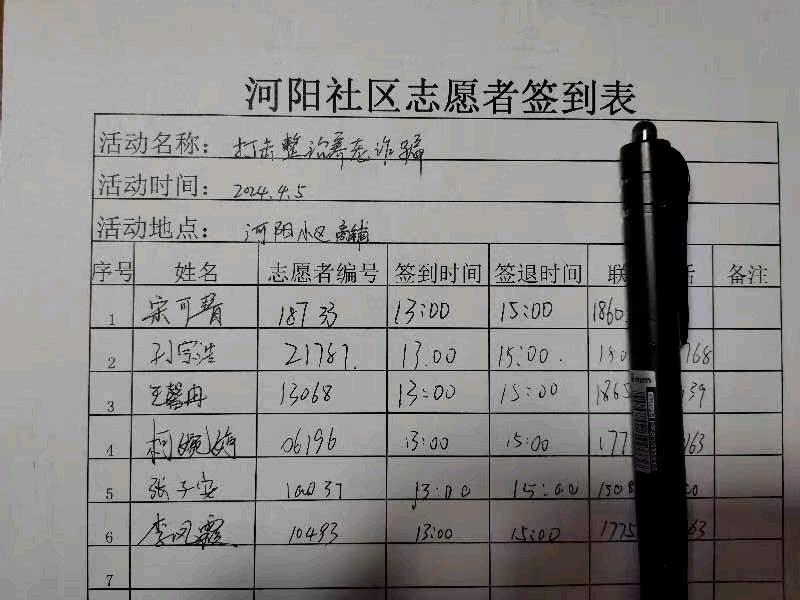 河阳社区志愿者签到表
活动名称： 打击整治养老诈骗
活动时间： 2024.4.5
活动地点： 河阳小区商铺
序号 姓名 志愿者编号 签到时间 签退时间 联 话 备注
1 宋可 18733 13:00 15:00 1860
2 孙宗浩 21787. 13.00 15:00. 150 768
3 王馨冉 13068 13:00 15:00 1865 139
4 柯婉婷 06196 13:00 15:00 177 163
5 张子安 10037 13:00 15:00 1508 0
6 李风霞 10493 13:00 15:00 1775 63
7